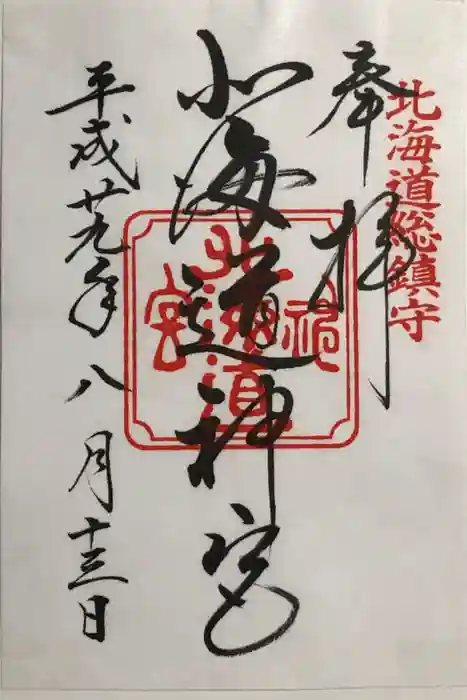 北海道総鎮守
奉拝
北海道神宮
北海道神宮
平成廿九年八月十三日